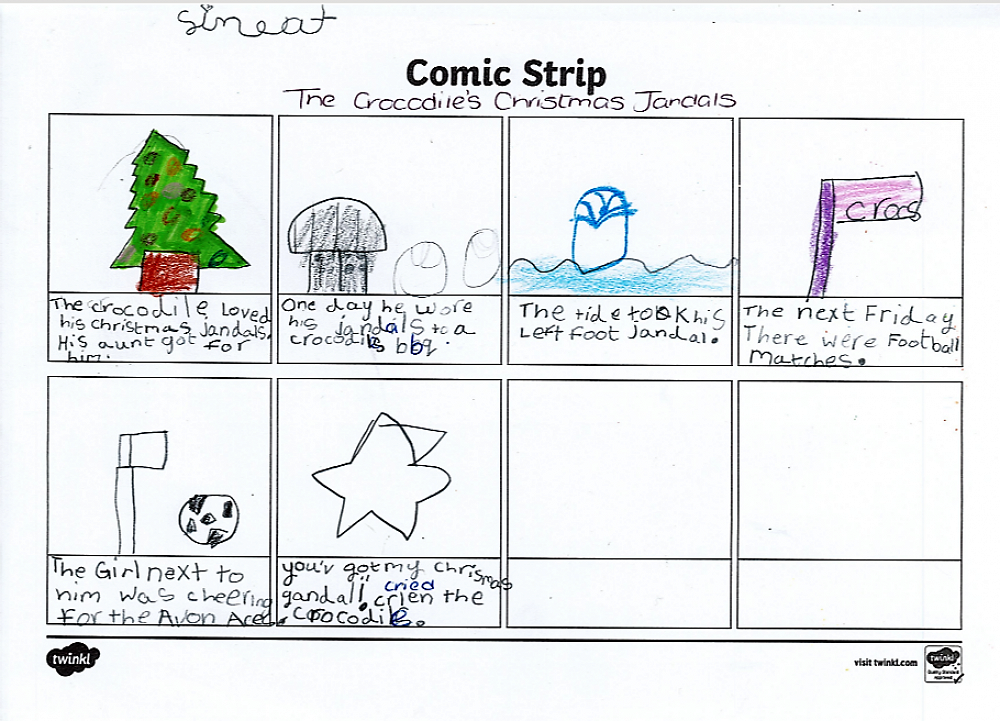 sineat
Comic Strip
The Crocodile's Christmas Jandals
crocs
The crocodile loved
his christmas jandals.
His aunt got for
him.
One day he wore
his jandals to a
crocodiles bbq.
The tide took his
Left foot Jandal.
The next Friday
There were Football
Matches.
The Girl next to
him was cheering
for the Avon Aces.
you'v got my Chrismas
gandal! cried
crien the
crocodile.
twinkl
visit twinkl.com
twinkl
Quality Standard
Approved